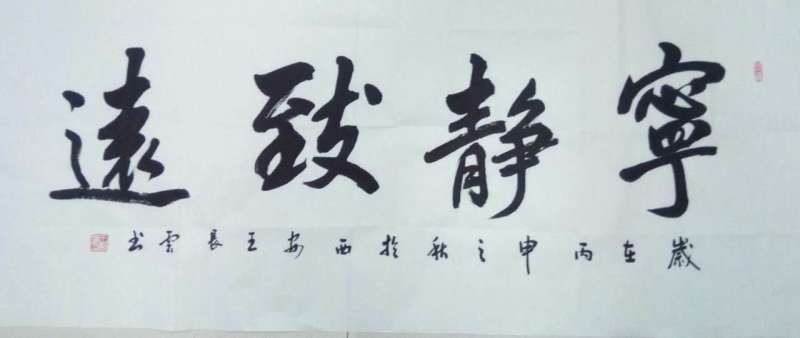 寧靜致遠
歲在丙申之秋於西安王長雲书